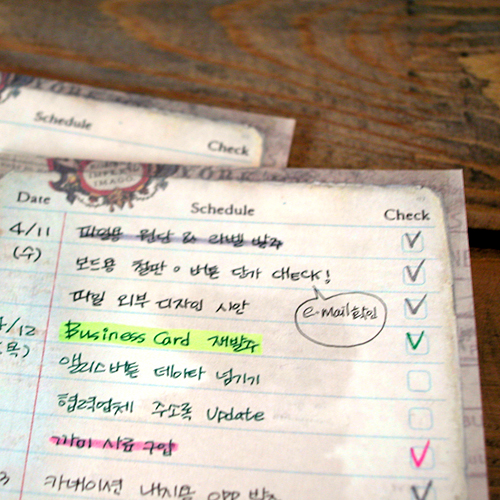 YORK
Schedule
Check
YORK
IMPERIAL
IMAGO
Date Schedule Check
4/11 파일용 원단 & 라벨 발주
(수) 보드용 철판 버튼 단가 CHECK!
파일 외부 디자인 시안
e-mail 확인
4/12 Business Card 재발주
(목) 앨리스버튼 데이타 넘기기
협력업체 주소록 update
가미 사료 구입
카네이션 내지용 OPP 발주